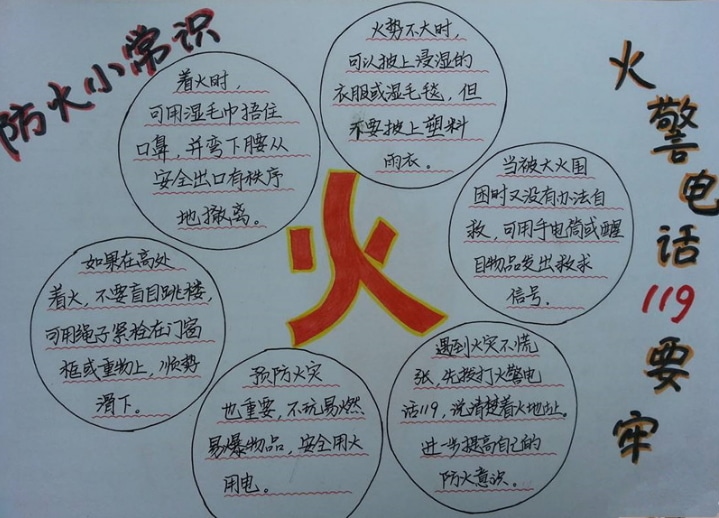 防火小常识
着火时，
可用湿毛巾捂住
口鼻，并弯下腰从
安全出口有秩序
地撤离。
火势不大时，
可以披上浸湿的
衣服或湿毛毯，但
不要披上塑料
雨衣。
当被大火围
困时又没有办法自
救，可用手电筒或醒
目物品发出救求
信号。
如果在高处
着火，不要盲目跳楼，
可用绳子紧栓在门窗
框或重物上，顺势
滑下。
预防火灾
也重要，不玩易燃
易爆物品，安全用火
用电。
遇到火灾不慌
张，先拨打火警电
话119，说清楚着火地址。
进一步提高自己的
防火意识。
火
火警电话119要牢